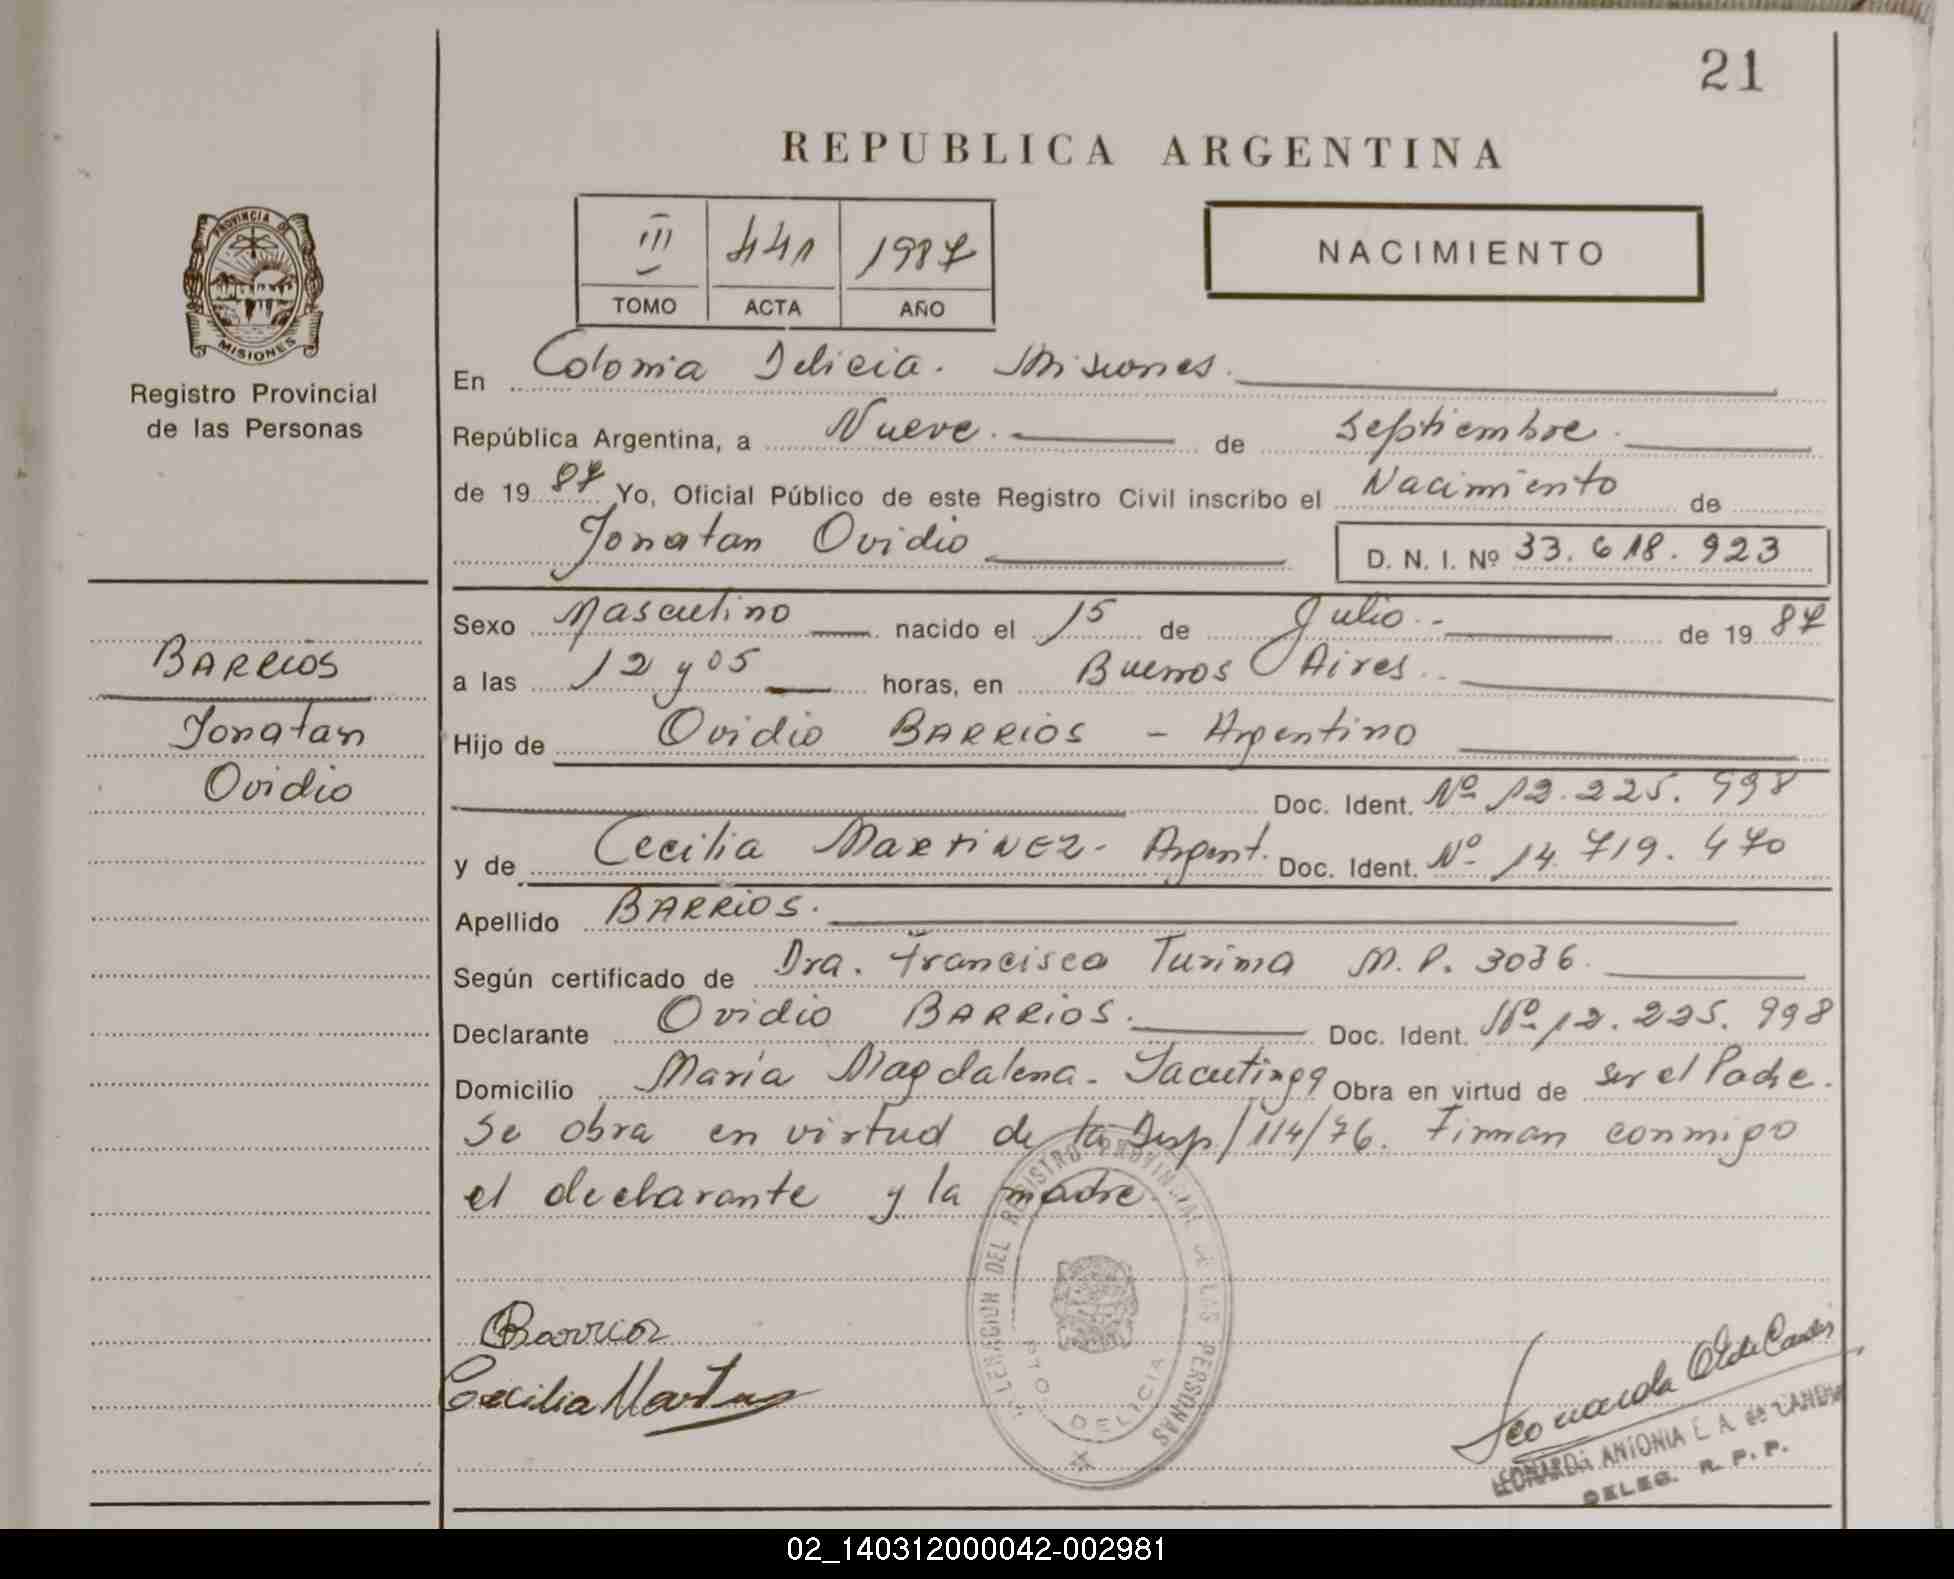 21
REPUBLICA ARGENTINA
PROVINCIA DE
MISIONES
Registro Provincial
de las Personas
III 441 1987
TOMO ACTA AÑO
NACIMIENTO
En Colonia Delicia. Misiones.
República Argentina, a Nueve. de Septiembre.
de 19 87 Yo, Oficial Público de este Registro Civil inscribo el Nacimiento de
Jonatan Ovidio D. N. I. Nº 33.618.923
BARRIOS
Jonatan
Ovidio
Sexo Masculino nacido el 15 de Julio. de 19 87
a las 12 y 05 horas, en Buenos Aires.
Hijo de Ovidio BARRIOS - Argentino
Doc. Ident. Nº 12.225.998
y de Cecilia MARTINEZ- Argent. Doc. Ident. Nº 14.719.470
Apellido BARRIOS.
Según certificado de Dra. Francisca M.P. 3036.
Declarante Ovidio BARRIOS. Doc. Ident. Nº 12.225.998
Domicilio María Magdalena - Obra en virtud de ser el Padre.
Se obra en virtud de la Disp/114/76. Firman conmigo
el declarante y la madre.
DEL REGISTRO PROVINCIAL de LAS PERSONAS
PTO. DELICIA
Barrios
Cecilia
Leonarda
LEONARDA ANTONIA L. A. de
DELEG. R. P. P.
02_140312000042-002981